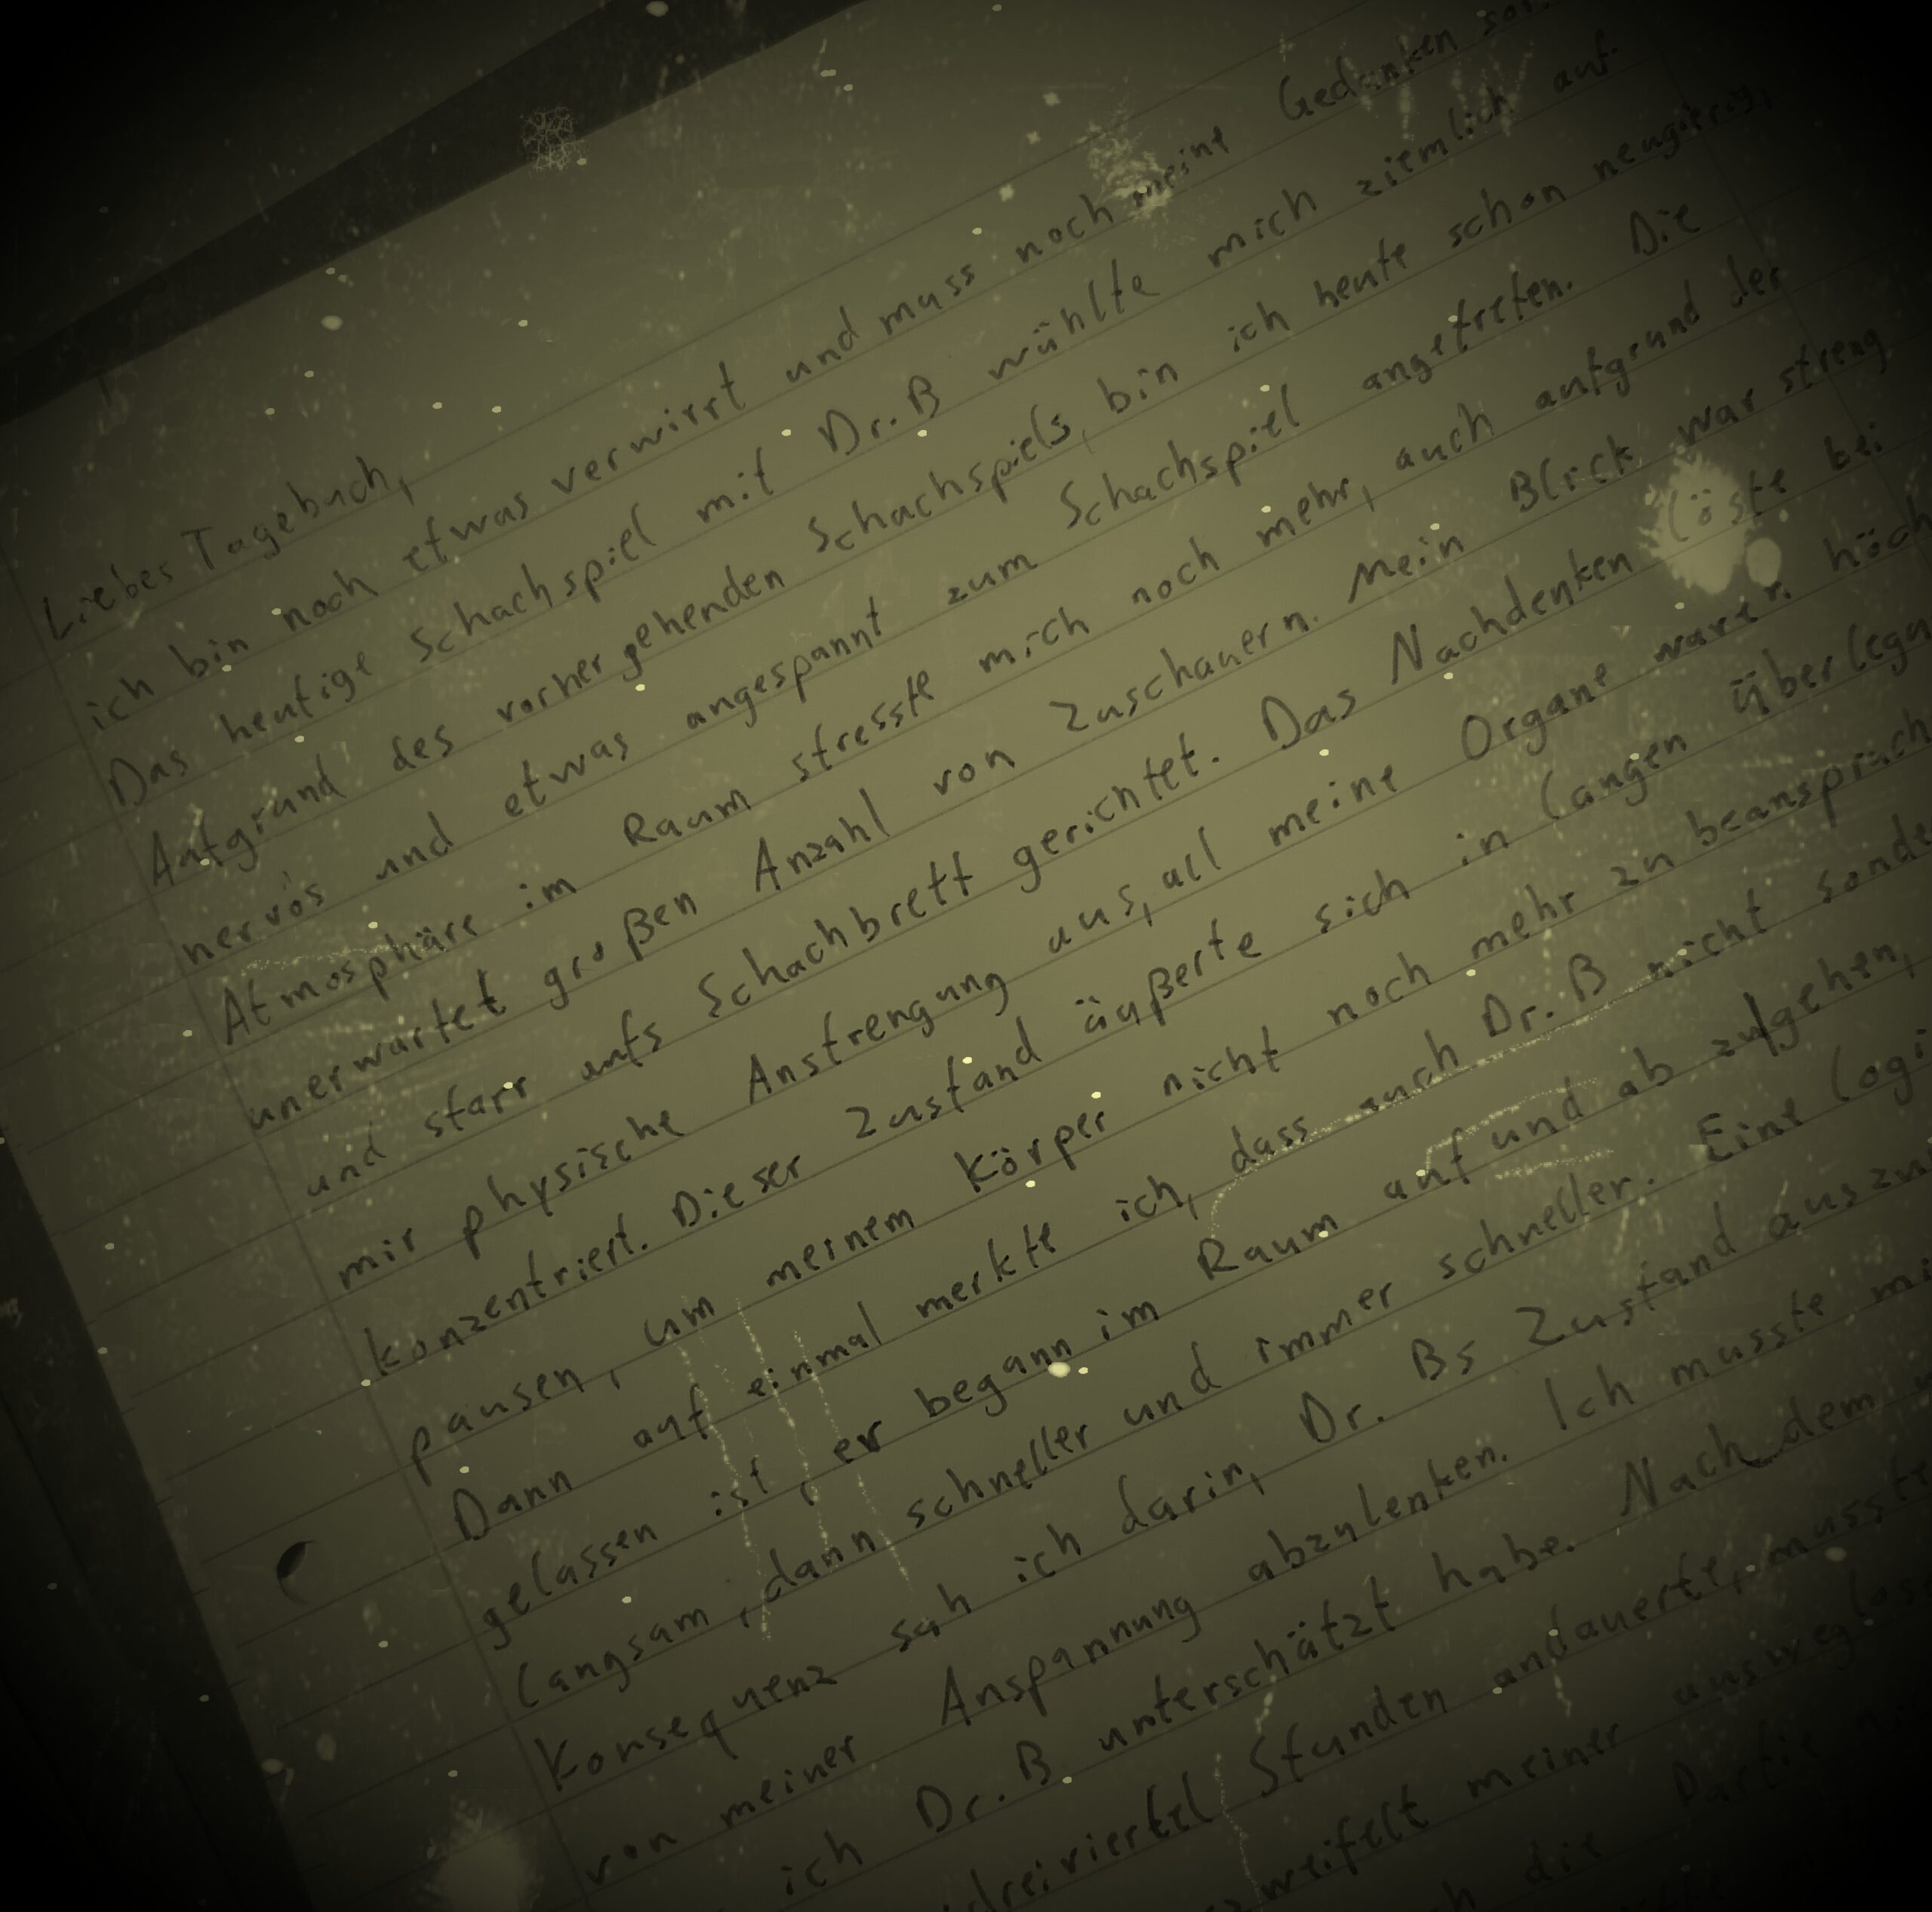 Liebes Tagebuch,
ich bin noch etwas verwirrt und muss noch meine Gedanken
Das heutige Schachspiel mit Dr. B wühlte mich ziemlich auf.
Aufgrund des vorhergehenden Schachspiels, bin ich heute schon neugierig,
nervös und etwas angespannt zum Schachspiel angetreten. Die
Atmosphäre im Raum stresste mich noch mehr, auch aufgrund der
unerwartet großen Anzahl von Zuschauern. Mein Blick war streng
und starr aufs Schachbrett gerichtet. Das Nachdenken löste bei
mir physische Anstrengung aus, all meine Organe waren höch
konzentriert. Dieser Zustand äußerte sich in langen Überlegu
pausen, um meinem Körper nicht noch mehr zu beanspruch
Dann auf einmal merkte ich, dass auch Dr. B nicht sonde
gelassen ist, er begann im Raum auf und ab zugehen,
langsam, dann schneller und immer schneller. Eine logi
Konsequenz sah ich darin, Dr. Bs Zustand auszu
von meiner Anspannung abzulenken. Ich musste
ich Dr. B unterschätzt habe. Nachdem
dreiviertel Stunden andauerte, musste
zweifelt meiner
die Partie